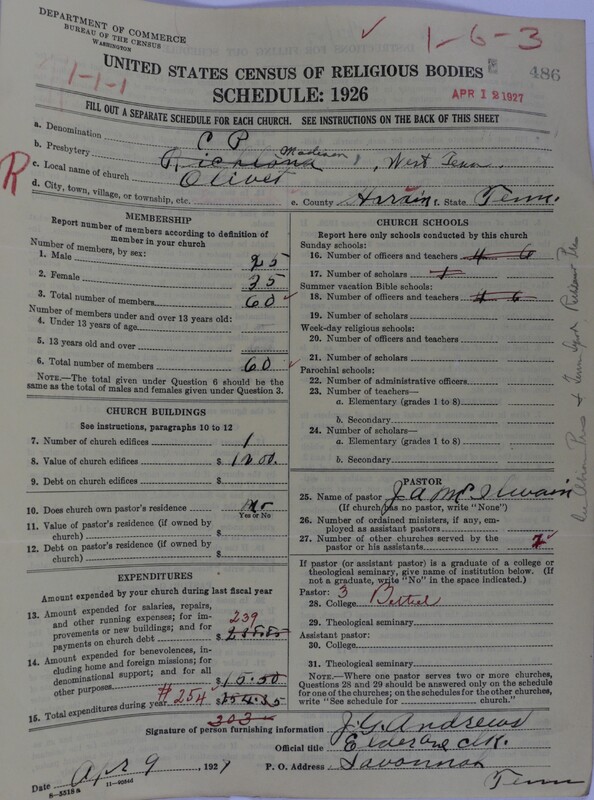 DEPARTMENT OF COMMERCE
BUREAU OF THE CENSUS
WASHINGTON
1-6-3
1-1-1
UNITED STATES CENSUS OF RELIGIOUS BODIES
486
SCHEDULE: 1926
APR 12 1927
FILL OUT A SEPARATE SCHEDULE FOR EACH CHURCH. SEE INSTRUCTIONS ON THE BACK OF THIS SHEET
a. Denomination C P
b. Presbytery Richland Madison, West Tenn.
R
c. Local name of church Olivet
d. City, town, village, or township, etc.
e. County Hardin f. State Tenn.
MEMBERSHIP
Report number of members according to definition of
member in your church
Number of members, by sex:
1. Male 25
2. Female 35
3. Total number of members 60
Number of members under and over 13 years old:
4. Under 13 years of age
5. 13 years old and over
6. Total number of members 60
NOTE.—The total given under Question 6 should be the
same as the total of males and females given under Question 3.
CHURCH BUILDINGS
See instructions, paragraphs 10 to 12
7. Number of church edifices 1
8. Value of church edifices $ 1200.
9. Debt on church edifices $
10. Does church own pastor's residence? No
Yes or No
11. Value of pastor's residence (if owned by
church) $
12. Debt on pastor's residence (if owned by
church) $
EXPENDITURES
Amount expended by your church during last fiscal year
13. Amount expended for salaries, repairs,
and other running expenses; for im-
provements or new buildings; and for
payments on church debt $
239
14. Amount expended for benevolences, in-
cluding home and foreign missions; for
denominational support; and for all
other purposes $ 15.50
15. Total expenditures during year #254 $
303
CHURCH SCHOOLS
Report here only schools conducted by this church
Sunday schools:
16. Number of officers and teachers 6
17. Number of scholars
Summer vacation Bible schools:
18. Number of officers and teachers 6
19. Number of scholars
Week-day religious schools:
20. Number of officers and teachers
21. Number of scholars
Parochial schools:
22. Number of administrative officers
23. Number of teachers—
a. Elementary (grades 1 to 8)
b. Secondary
24. Number of scholars—
a. Elementary (grades 1 to 8)
b. Secondary
PASTOR
25. Name of pastor J A McIlwain
(If church has no pastor, write "None")
26. Number of ordained ministers, if any, em-
ployed as assistant pastors
27. Number of other churches served by the
pastor or his assistants
If pastor (or assistant pastor) is a graduate of a college or
theological seminary, give name of institution below. (If
not a graduate, write "No" in the space indicated.)
Pastor: 3
28. College Bethel
29. Theological seminary
Assistant pastor:
30. College
31. Theological seminary
NOTE.—Where one pastor serves two or more churches,
Questions 28 and 29 should be answered only on the schedule
for one of the churches; on the schedules for the other churches,
write "See schedule for church."
Signature of person furnishing information J. G. Andrews
Official title Elder and Clk.
Date Apr 9, 1927
P. O. Address Savannah
Tenn
8-5518a